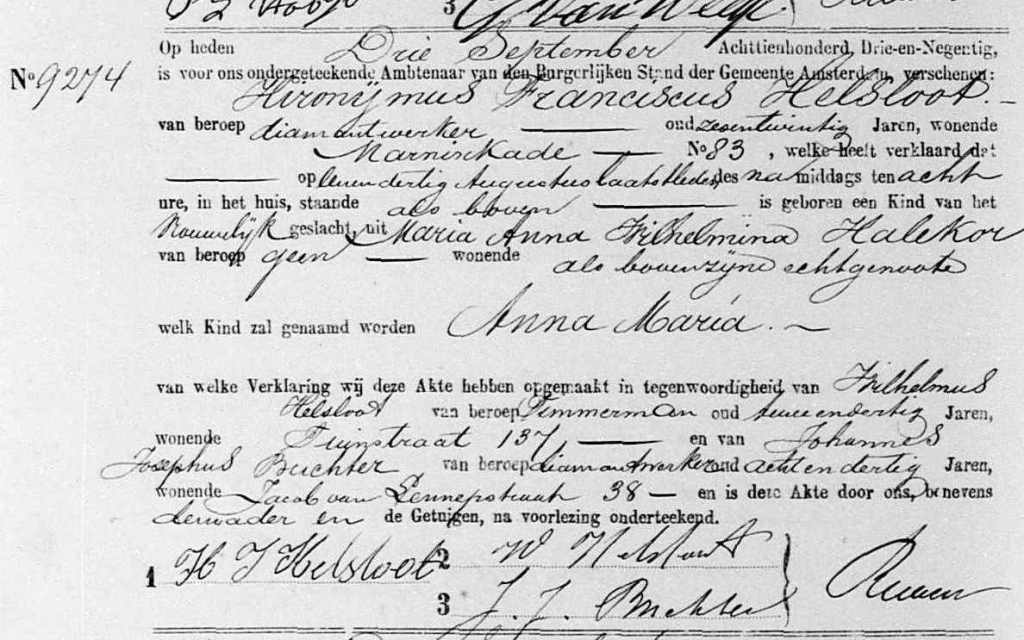 3
Op heden Drie September Achttienhonderd, Drie-en-Negentig,
No 9274 is voor ons ondergeteekende Ambtenaar van den Burgerlijken Stand der Gemeente Amsterdam, verschenen:
Hironijmus Franciscus Helsloot. —
van beroep diamantwerker — oud zesentwintig Jaren, wonende
Marnixkade — No 83, welke heeft verklaard dat
— op eenendertig Augustus laatstleden, des na middags ten acht
ure, in het huis, staande als boven — is geboren een Kind van het
Vrouwelijk geslacht, uit Maria Anna Wilhelmina Halekor
van beroep geen — wonende als boven zijne echtgenoote
welk Kind zal genaamd worden Anna Maria. —
van welke Verklaring wij deze Akte hebben opgemaakt in tegenwoordigheid van Wilhelmus
Helsloot van beroep Timmerman oud tweeendertig Jaren,
wonende Tuinstraat 137, — en van Johannes
Josephus Buchter van beroep diamantwerker oud achtendertig Jaren,
wonende Jacob van Lennepstraat 38 — en is deze Akte door ons, benevens
den vader en de Getuigen, na voorlezing onderteekend.
1 H F Helsloot 2 W Helsloot
3 J. J. Buchter